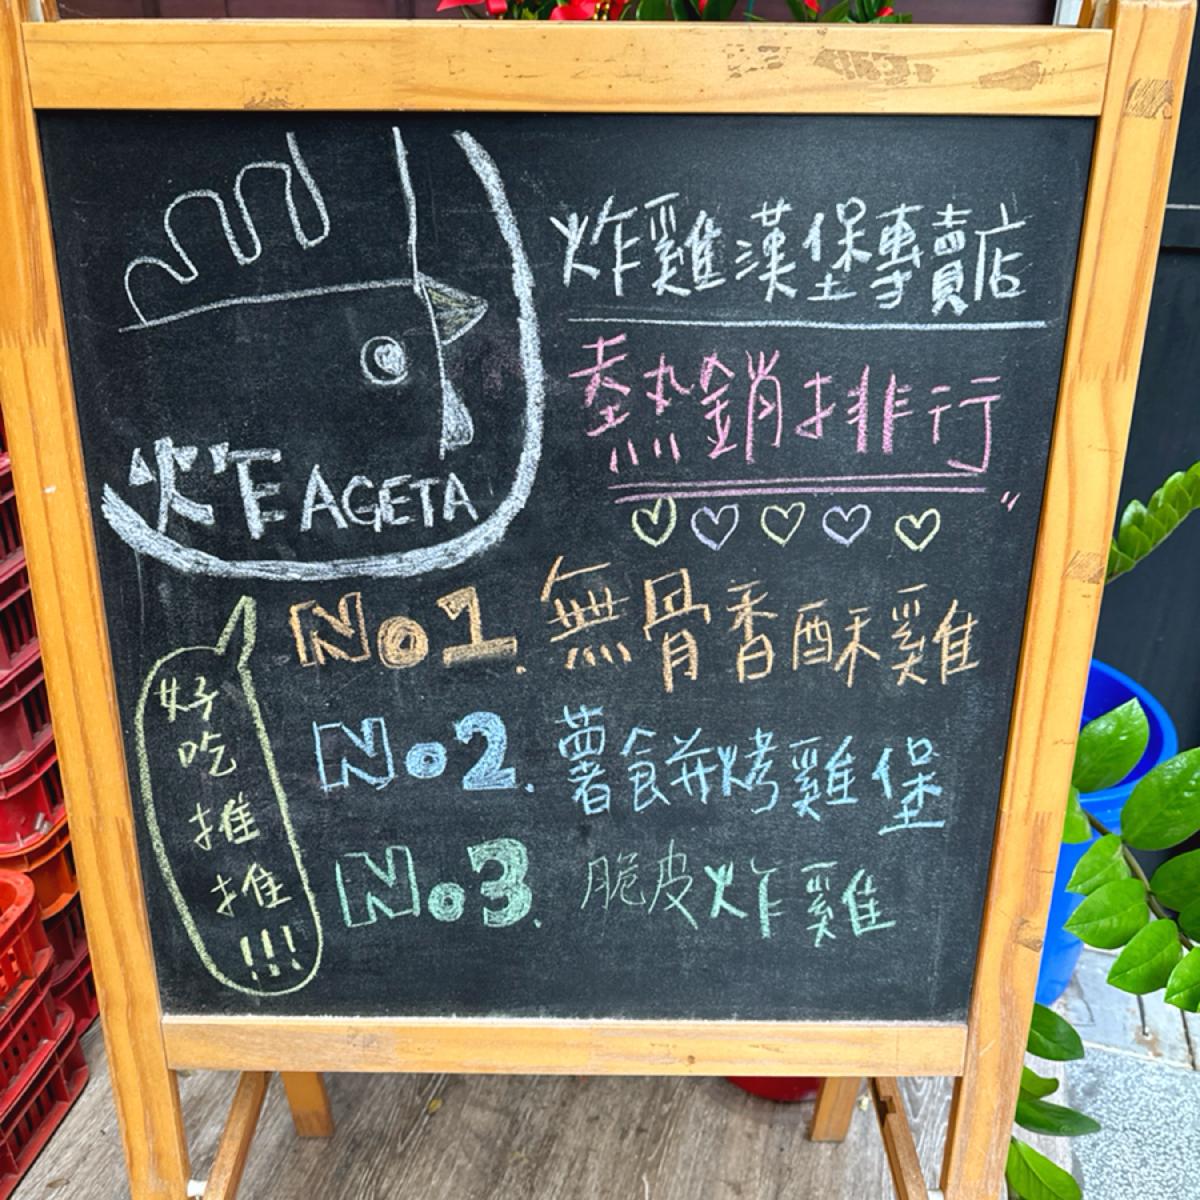 炸雞漢堡專賣店
熱銷排行
炸 AGETA
No1. 無骨香酥雞
No2. 薯餅烤雞堡
No3. 脆皮炸雞
好吃推推!!!